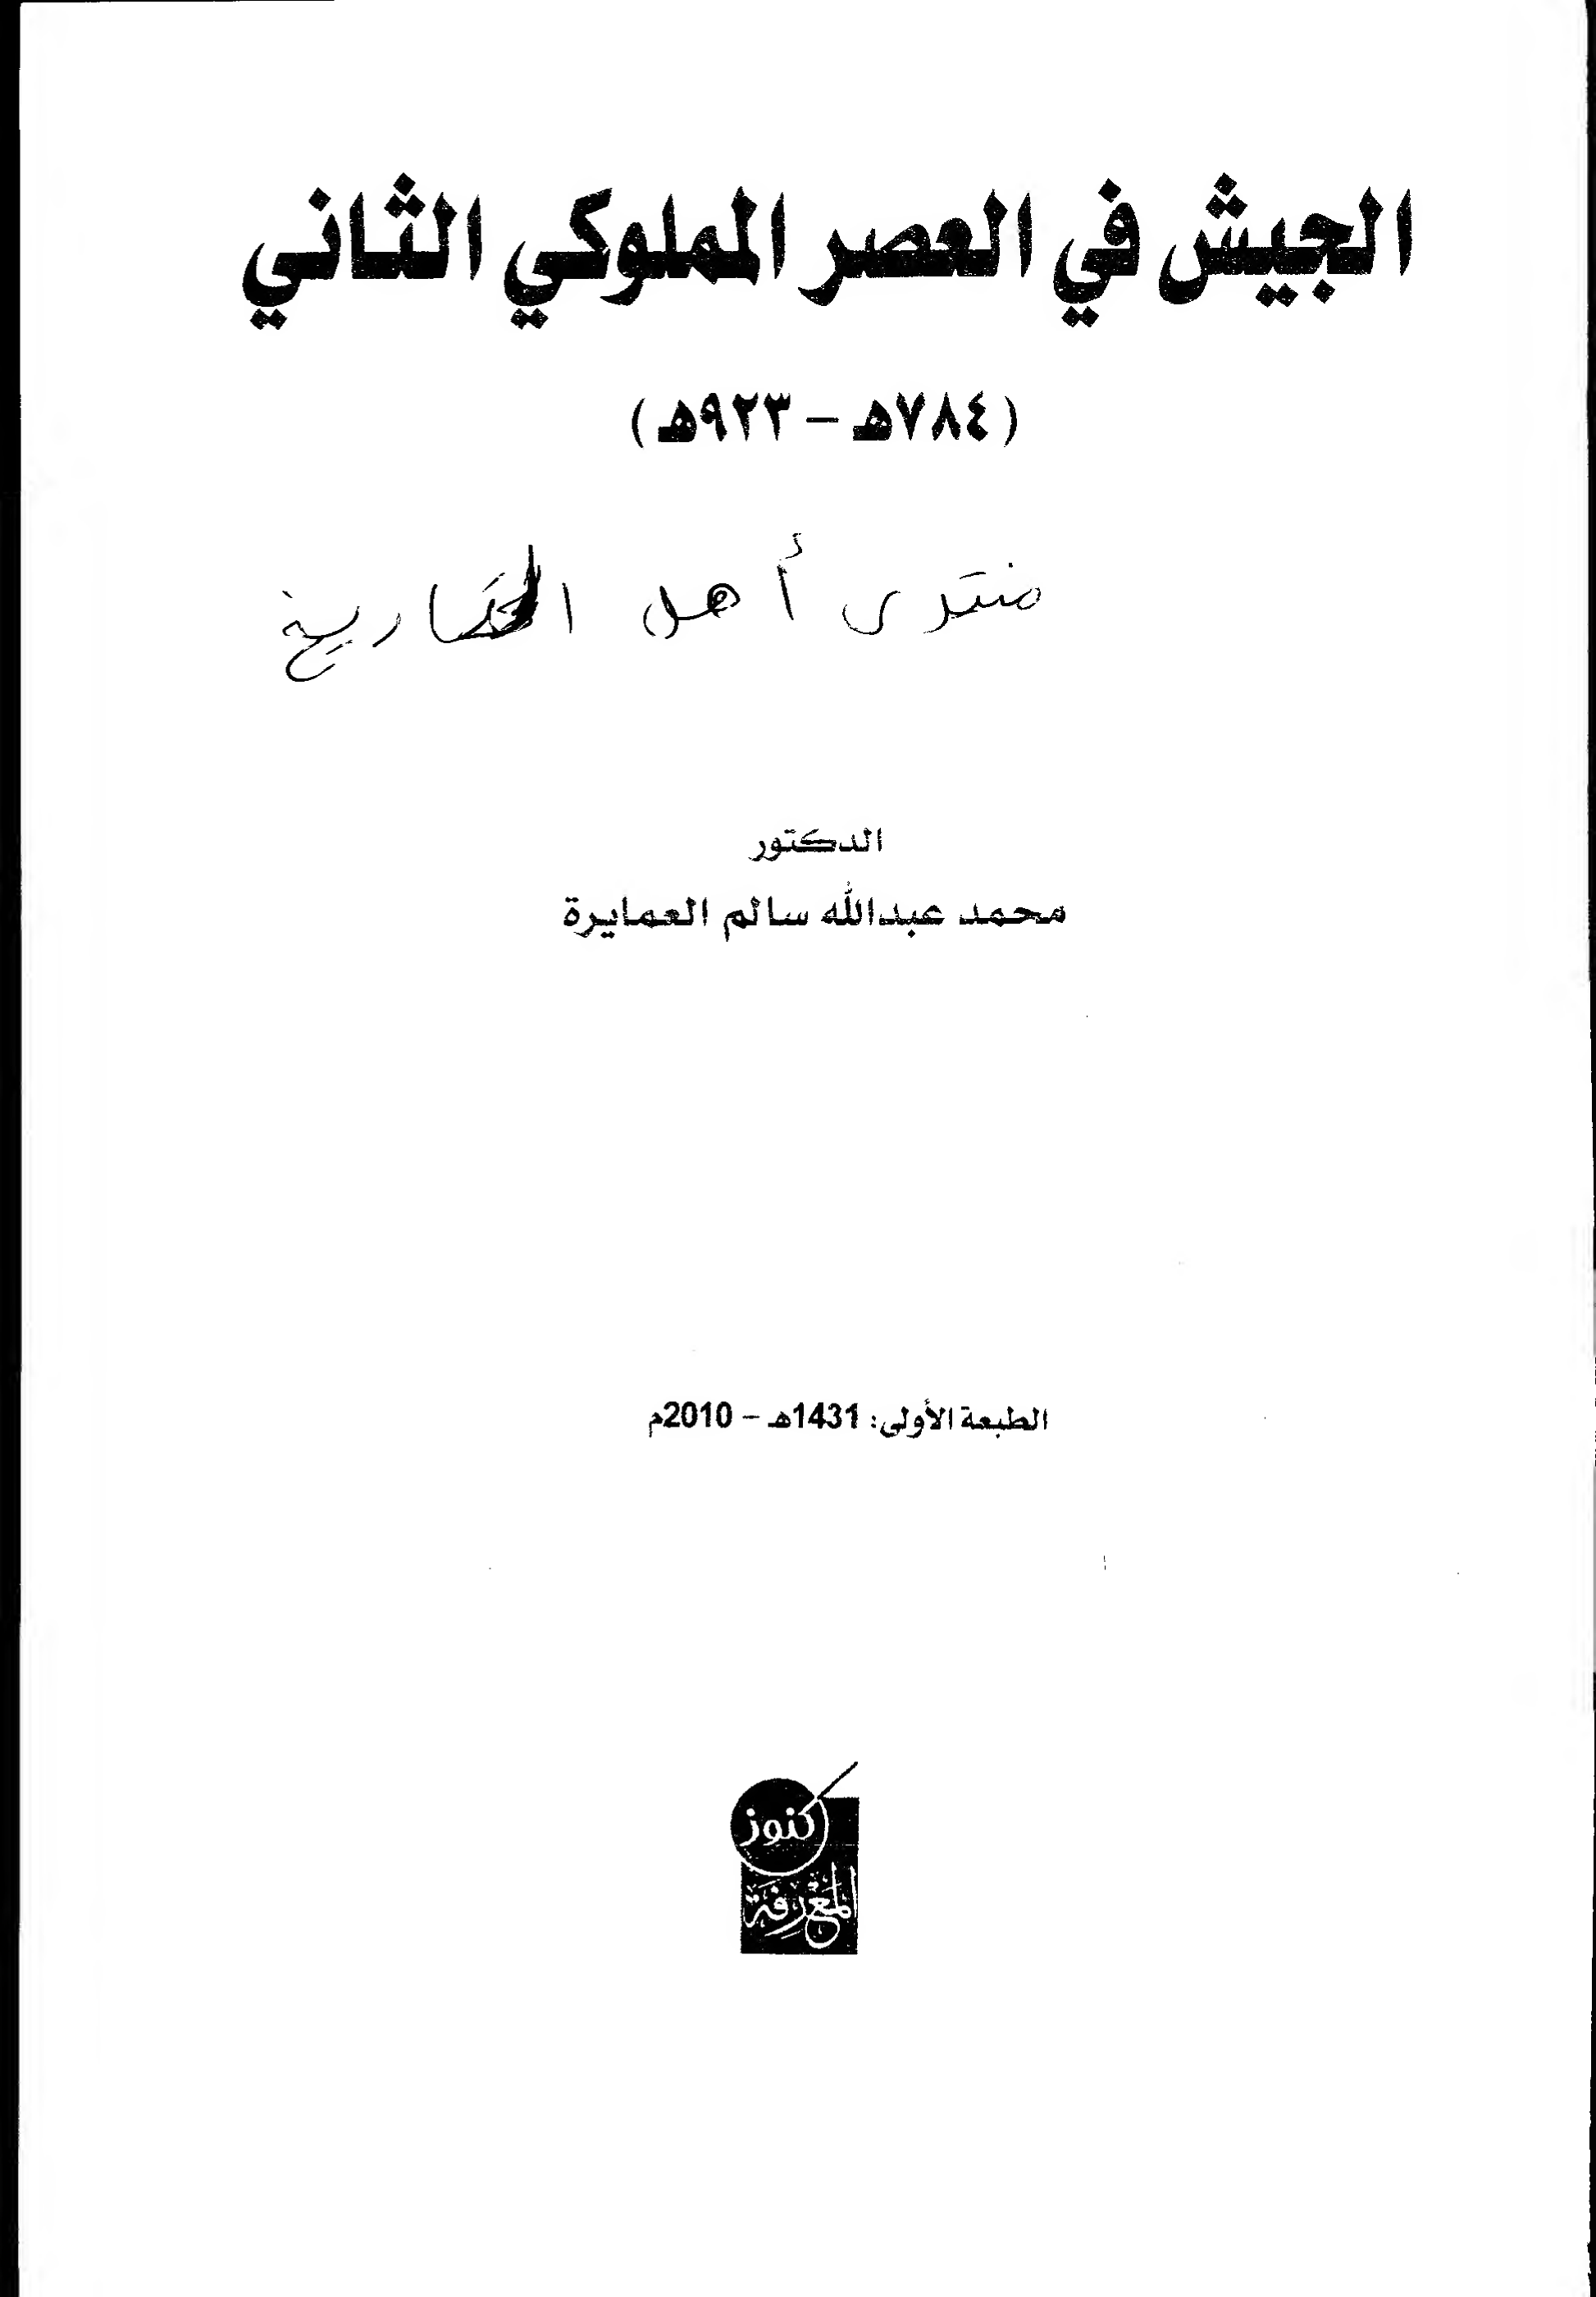 الجيش في العصر المملوكي الثاني
(٧٨٤هـ - ٩٢٣هـ)
منتدى أهل التاريخ
الدكتور
محمد عبدالله سالم العمايرة
الطبعة الأولى: 1431هـ - 2010م
كنوز
المعرفة